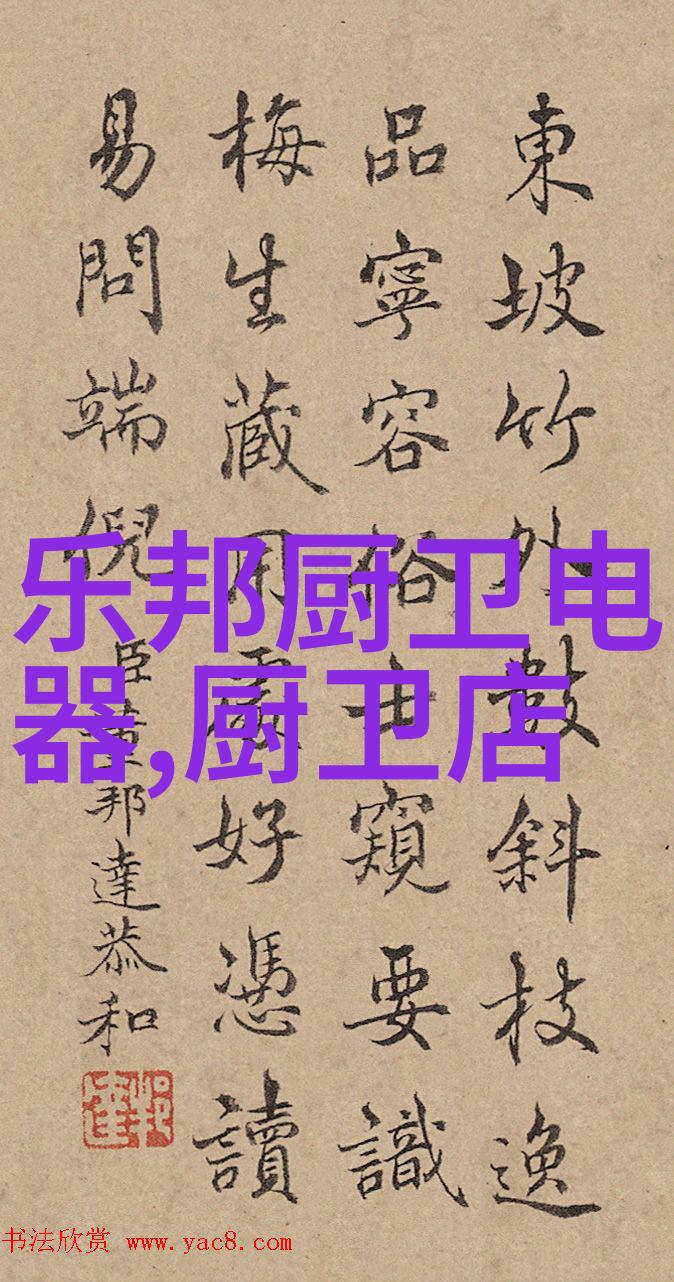 東坡竹外斜枝逸
品寧容俗士窺要識
梅生藏用處好憑讀
易問端倪
臣董邦達恭和
乐邦厨卫电
器,厨卫店
书法欣赏 www.yac8.com